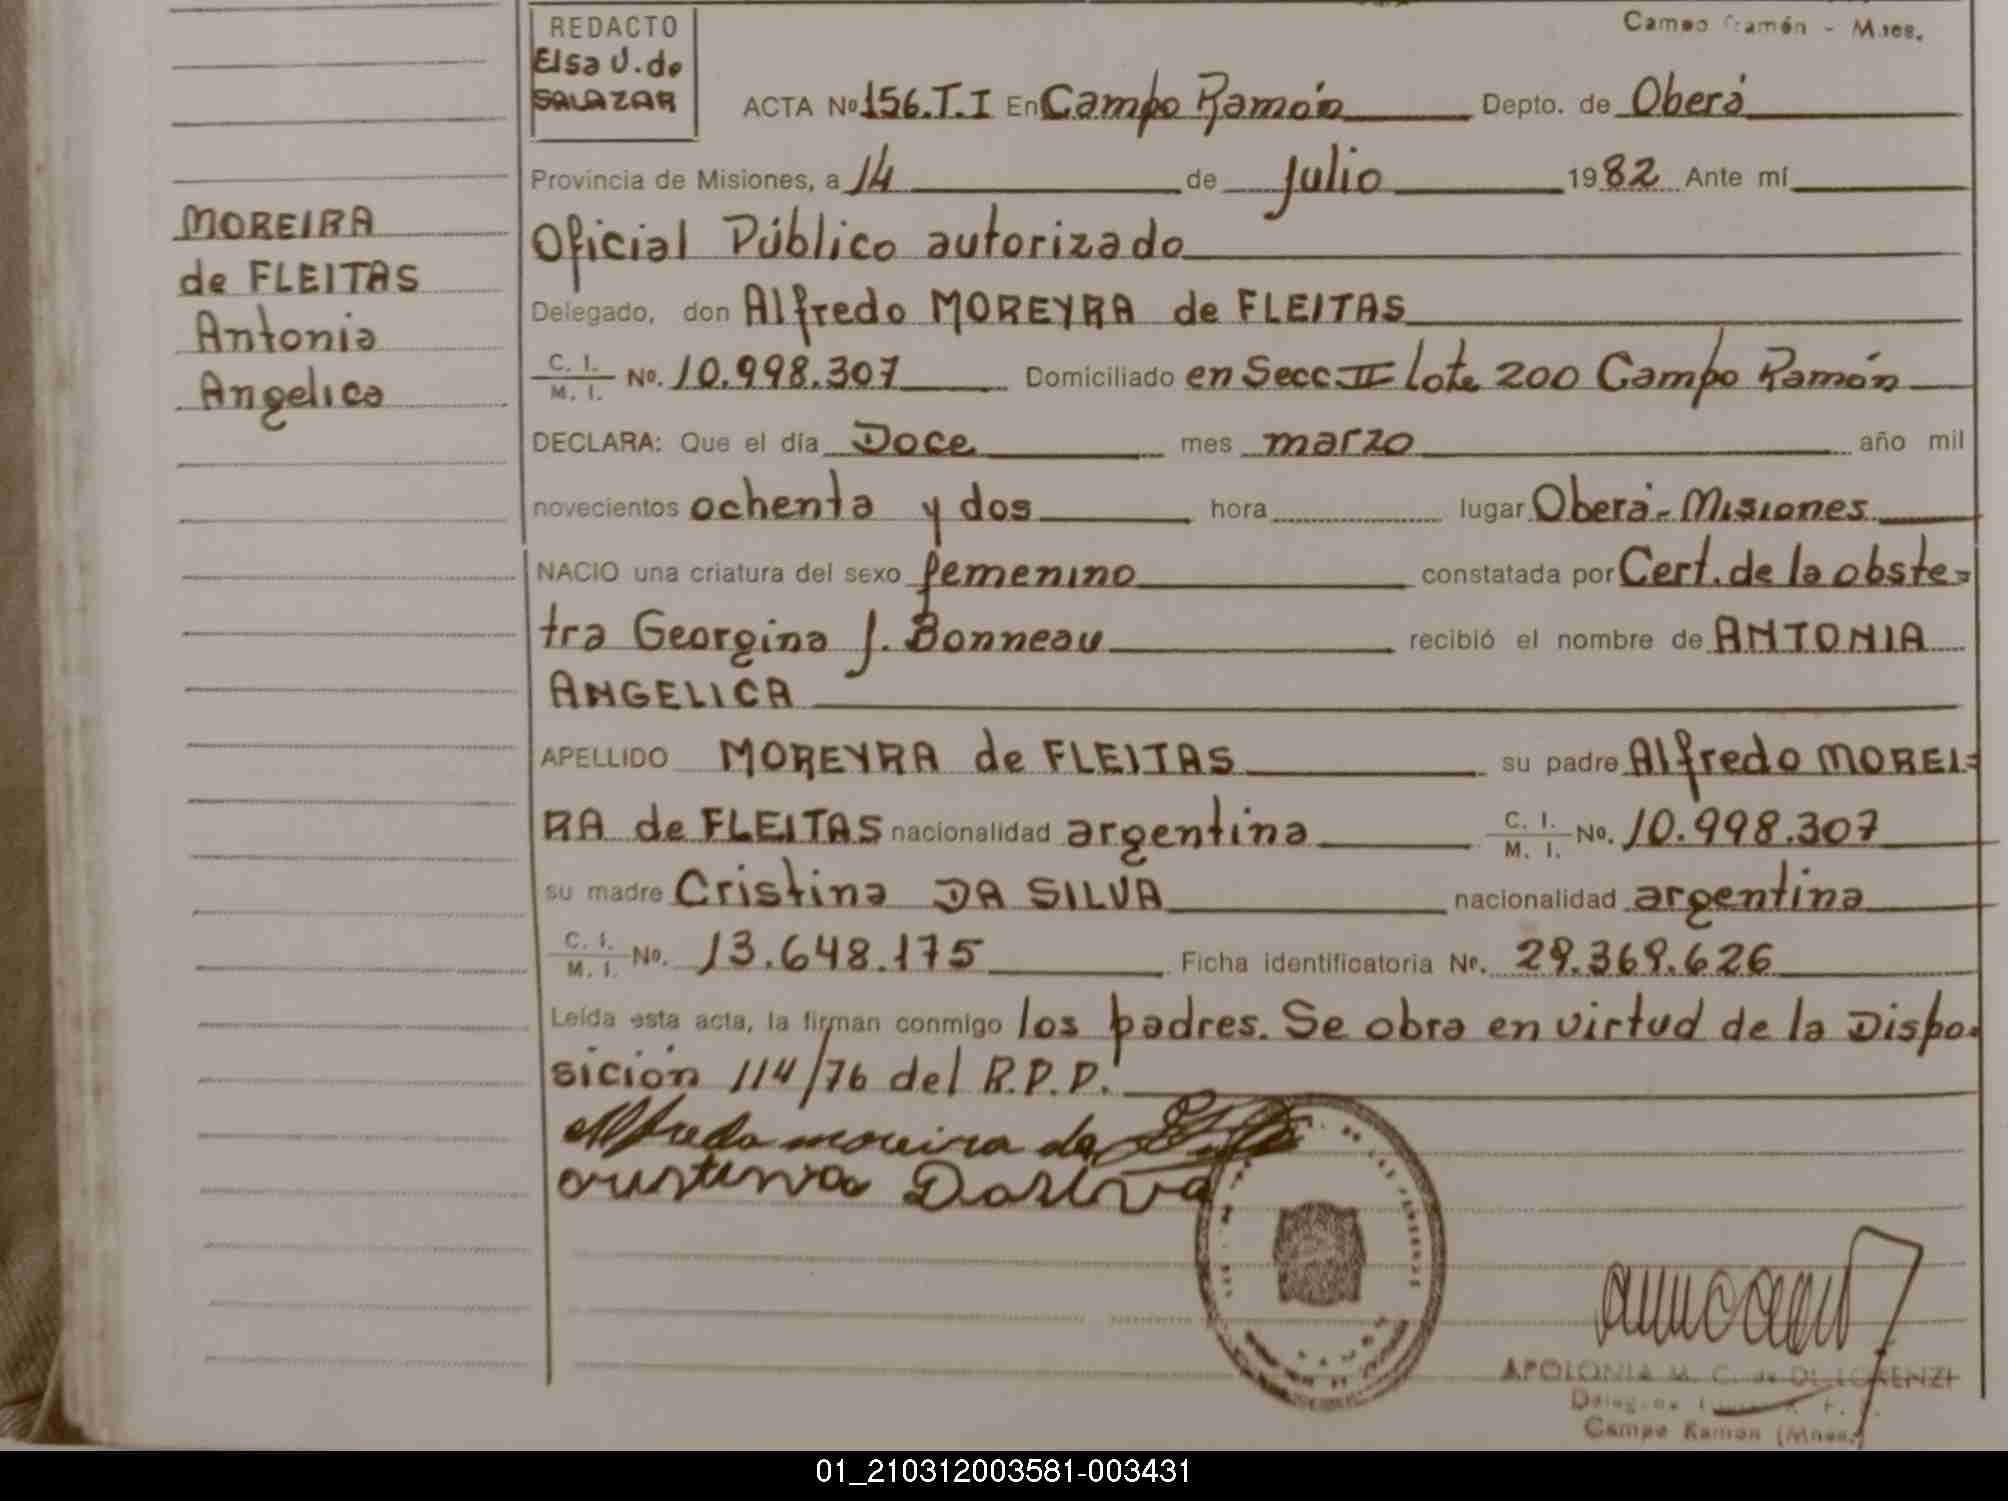 Campo Ramón - Mnes.
REDACTO
Elsa U. de
SALAZAR
ACTA Nº 156.T.I En Campo Ramón Depto. de Oberá
Provincia de Misiones, a 14 de julio 1982 Ante mí
Oficial Público autorizado
Delegado, don Alfredo MOREYRA de FLEITAS
C. I. M. I. Nº. 10.998.307 Domiciliado en Secc. II lote 200 Campo Ramón
DECLARA: Que el día Doce mes marzo año mil
novecientos ochenta y dos hora lugar Oberá - Misiones
NACIO una criatura del sexo femenino constatada por Cert. de la obste-
tra Georgina J. Bonneau recibió el nombre de ANTONIA
ANGELICA
APELLIDO MOREYRA de FLEITAS su padre Alfredo MOREI-
RA de FLEITAS nacionalidad argentina C. I. M. I. Nº. 10.998.307
su madre Cristina DA SILVA nacionalidad argentina
C. I. M. I. Nº. 13.648.175 Ficha identificatoria Nº. 29.369.626
Leída esta acta, la firman conmigo los padres. Se obra en virtud de la Dispo-
sición 114/76 del R.P.P.
Alfredo moreira de
cristina Dasilva
APOLONIA M. C. de DI LORENZI
Campo Ramón (Mnes.)
MOREIRA
de FLEITAS
Antonia
Angelica
01_210312003581-003431